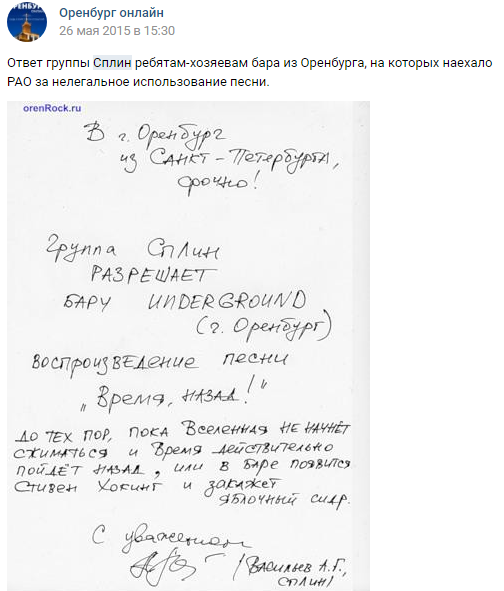 Оренбург онлайн
26 мая 2015 в 15:30
Ответ группы Сплин ребятам-хозяевам бара из Оренбурга, на которых наехало
РАО за нелегальное использование песни.
orenRock.ru
В г. Оренбург
из Санкт-Петербурга,
срочно!
Группа Сплин
разрешает
бару UNDERGROUND
(г. Оренбург)
воспроизведение песни
„Время, назад!"
до тех пор, пока Вселенная не начнёт
сжиматься и Время действительно
пойдёт назад, или в баре появится
Стивен Хокинг и закажет
яблочный сидр.
С уважением
/Васильев А.Г.,
Сплин/